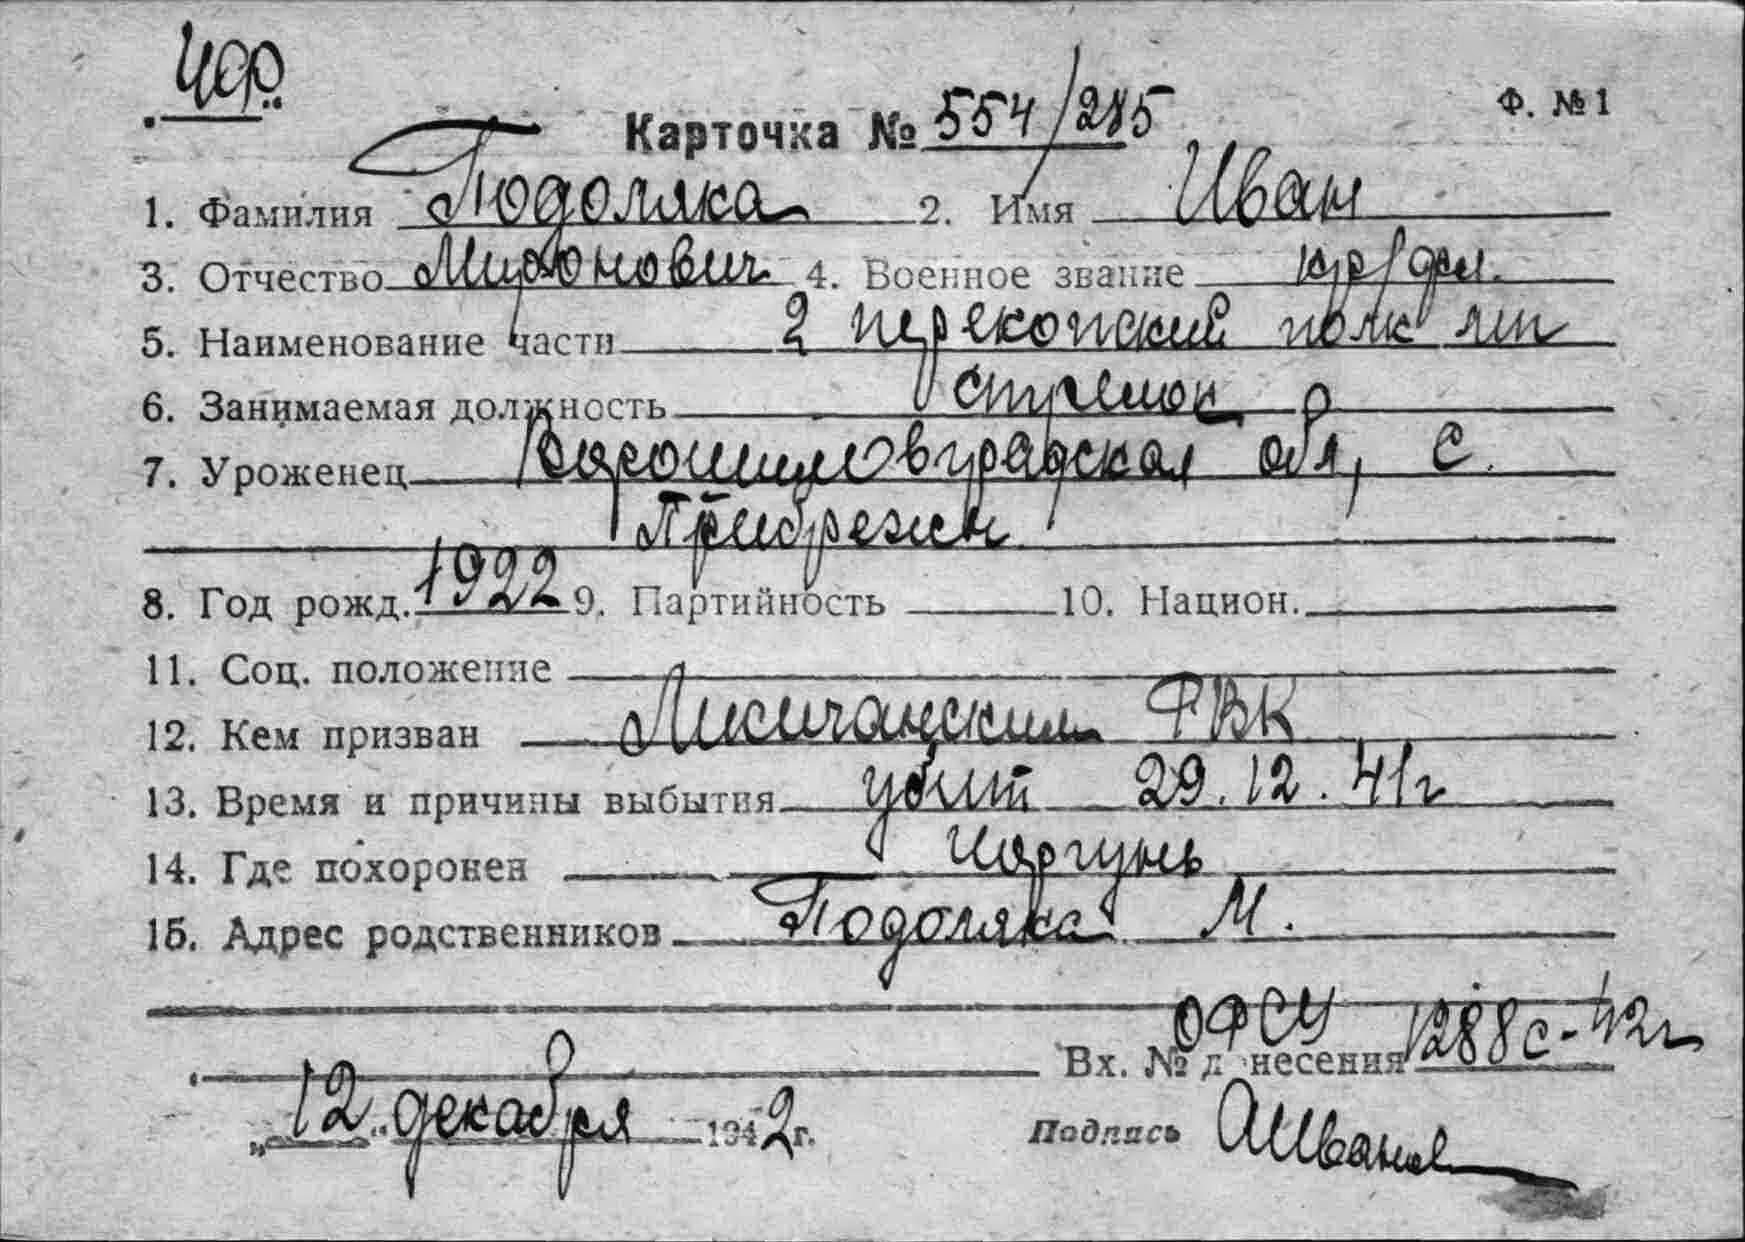 ЧФ
Ф. №1
Карточка № 554/285
1. Фамилия Подоляка 2. Имя Иван
3. Отчество Миронович 4. Военное звание кр/фл.
5. Наименование части 2 перекопский полк мп
6. Занимаемая должность стрелок
7. Уроженец Ворошиловградская обл, с.
Прибрежн
8. Год рожд. 1922 9. Партийность 10. Национ.
11. Соц. положение
12. Кем призван Лисичанским РВК
13. Время и причины выбытия убит 29.12.41г
14. Где похоронен Чоргунь
15. Адрес родственников Подоляка М.
ОФСУ
Вх. № донесения 1288с-42г
„12" декабря 1942г. Подпись